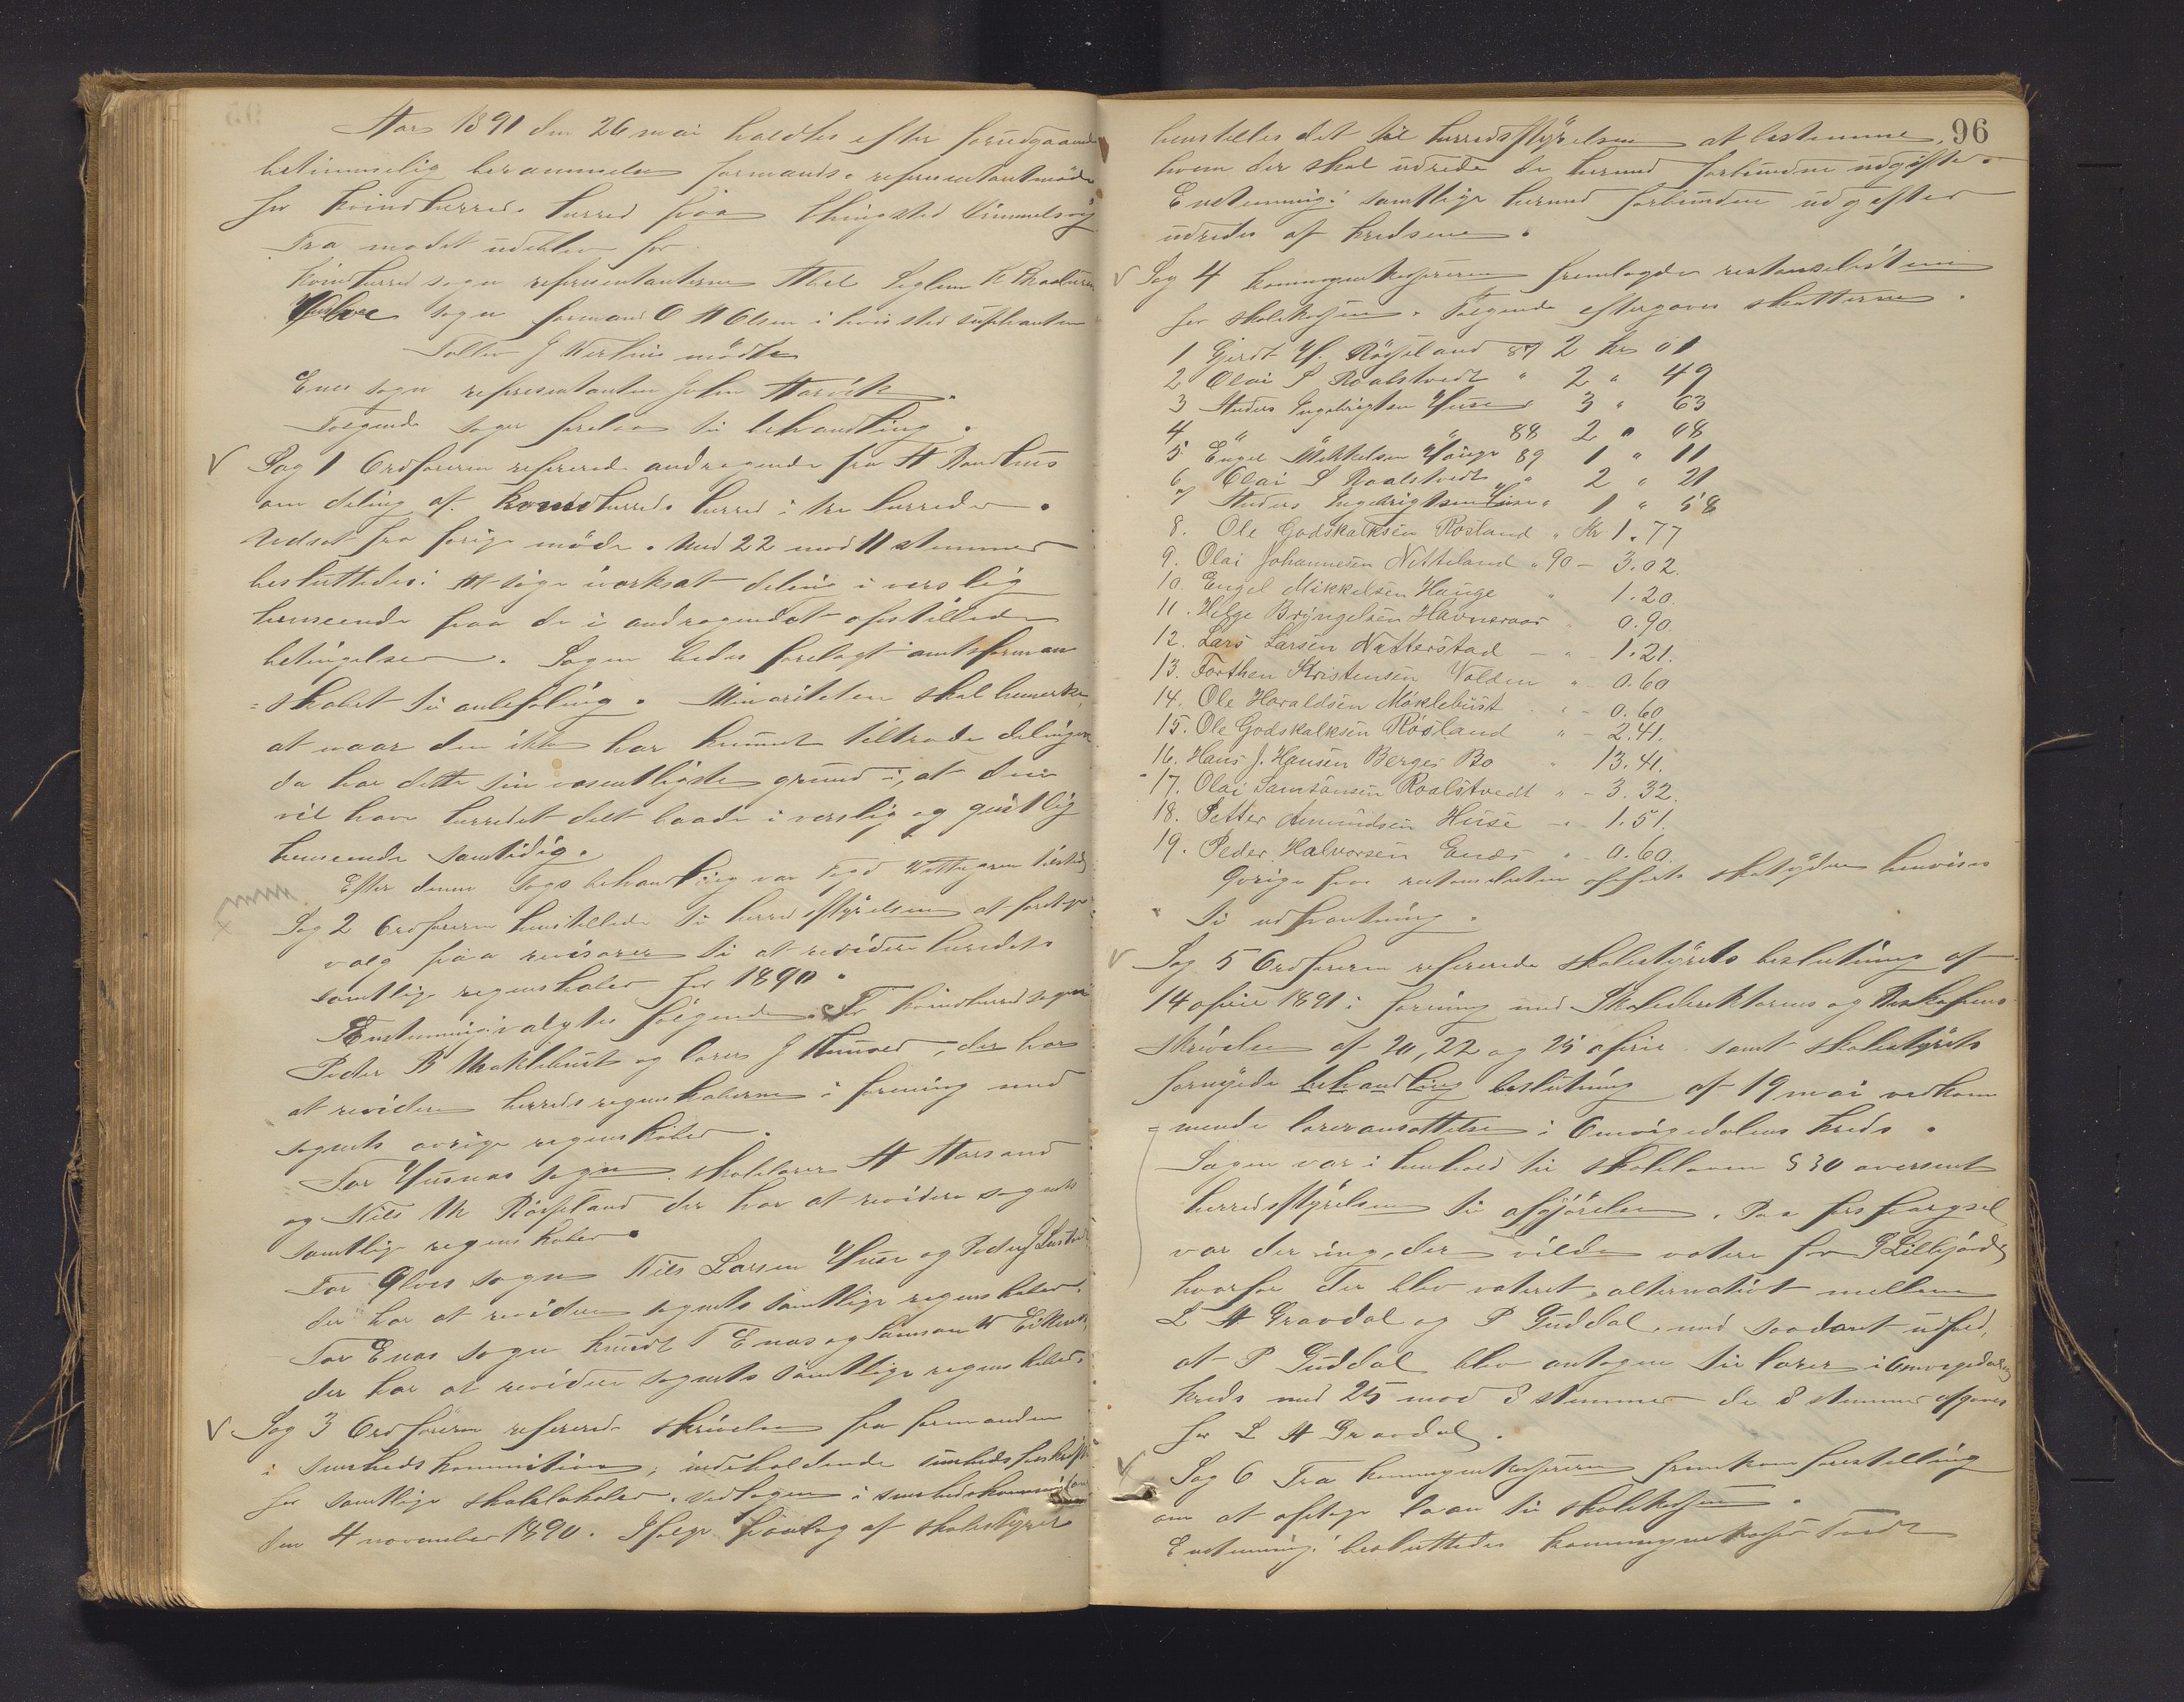 Aar 1891 den 26 mai holdtes efter forudgaaende
betimmelig berammelse formands & representantmöde
for Kvindherred herred paa thingsted Uinmelsvig
Fra mödet udeblev for
Kvindherred sogn representanterne Abel Seglem K Skaaluren
Ølve sogn formand O H Olsen i hvis sted suplianten
Tollev J mödte
Enes sogn representanten John Aarvik.
Fölgende sager forelaa til behandling.
Sag 1 Ordföreren refererede andragende fra A Sandhus
om deling af Kvindherreds herred i tre herreder.
Udsat fra forige möde. Med 22 mod 11 stemmer
besluttedes: At söge iverksat deling i verslig
henseende paa de i andragendet opstillede
betingelser. Sagen bedes forelagt amtsforman
=skabet til anbefaling. Minoriteten skal bemerke,
at naar den ikke har kunnet tiltræde delingen
da har dette sin væsentligste grund i, at den
vil have herredet delt baade i verslig og geistlig
henseende samtidig.
Efter denne sags behandling var foged tilstede
Sag 2 Ordföreren henstillede til herredsstyrelsen at foretage
valg paa revisorer til at revidere herredets
samtlige regnskaber for 1890.
Enstemmig valgtes fölgende. For Kvindherred sogn
Peder B Mæklebust og lærer J, der har
at revidere herreds regnskaberne i forening med
sognets övrige regnskaber.
For Husnæs sogn. skolelærer A Aarsand
og Nils M Rössland der har at revidere sognets
samtlige regnskaber.
For Ølves sogn Nils Larsen Huse og Peder J
der har at revidere sognets samtlige regnskaber.
For Enæs sogn Knudt T Enæs og Samson W
der har at revidere sognets samtlige regnskaber.
Sag 3 Ordföreren refererede skrivelse fra formanden
i sunhedskommitionen, indeholdende sunhedsforskrift
for samtlige skolelokaler. vedtagen i sunhedskommitionen
den 4 november 1890. Ifölge forslag af skolestyret
96
henstilles det til herredsstyrelsen at bestemme,
hvem der skal udrede de herved forbundne udgifter.
Enstemmig: samtlige herved forbundne udgifter
udredes af kredsene.
Sag 4 kommunekassereren fremlagde restanselisterne
for skolekassen. Fölgende eftergaves skatterne.
1 Gjerdt H. Rössland 89 2 kr 01
2 Olai S Roalstvedt " 2 " 49
3 Anders Ingebrigtsen Huse " 3 " 63
4 " " 88 2 " 08
5 Engel Mikkelsen Hauge 89 1 " 11
6 Olai S Roalstvedt " " 2 " 21
7 Anders Ingebrigtsen Huse " 1 " 58
8. Ole Godskalksen Røsland " Kr 1.77
9. Olai Johannesen Netteland " 90 – 3.02.
10. Engel Mikkelsen Hauge " 1.20.
11. Helge Bryngelsen Havneraas " 0.90.
12. Lars Larsen Natterstad – " 1.21.
13. Torthen Kristensen Volden " – 0.60
14. Ole Haraldsen Mæklebust " – 0.60
15. Ole Godskalksen Røsland " – 2.41.
16. Hans J. Hansen Berges Bo " 13.41.
17. Olai Samsonsen Roalstvedt " – 3.32.
18. Petter Amundsen Huse – " 1.51.
19. Peder Halvorsen Enæs " – 0.60.
Övrige paa restanselisten opförte skatydere henvises
til udpantning.
Sag 5 Ordföreren refererede skolestyrets beslutning af
14 april 1891 i forening med Skoledirektörens og Biskoppens
skrivelse af 20, 22 og 25 april samt skolestyrets
fornyede behandling beslutning af 19 mai vedkom
=mende læreransættelse i Omvigedalens kreds.
Sagen var i henhold til skoleloven § 30 oversent
herredsstyrelsen til afgjörelse. Paa forspörgsel
var der ing, der vilde votere for P Lillefjord,
hvorfor der blev voteret alternativt mellem
L A Gravdal og P Guddal, med saadant udfald,
at P Guddal blev antagen til lærer i Omvigedalens
kreds med 25 mod 8 stemmer de 8 stemmer afgaves
for L A Gravdal.
Sag 6 Fra kommunekassereren fremkom forestilling
om at optage laan til skolekassen.
Enstemmig: besluttedes kommunekasser Tvedt